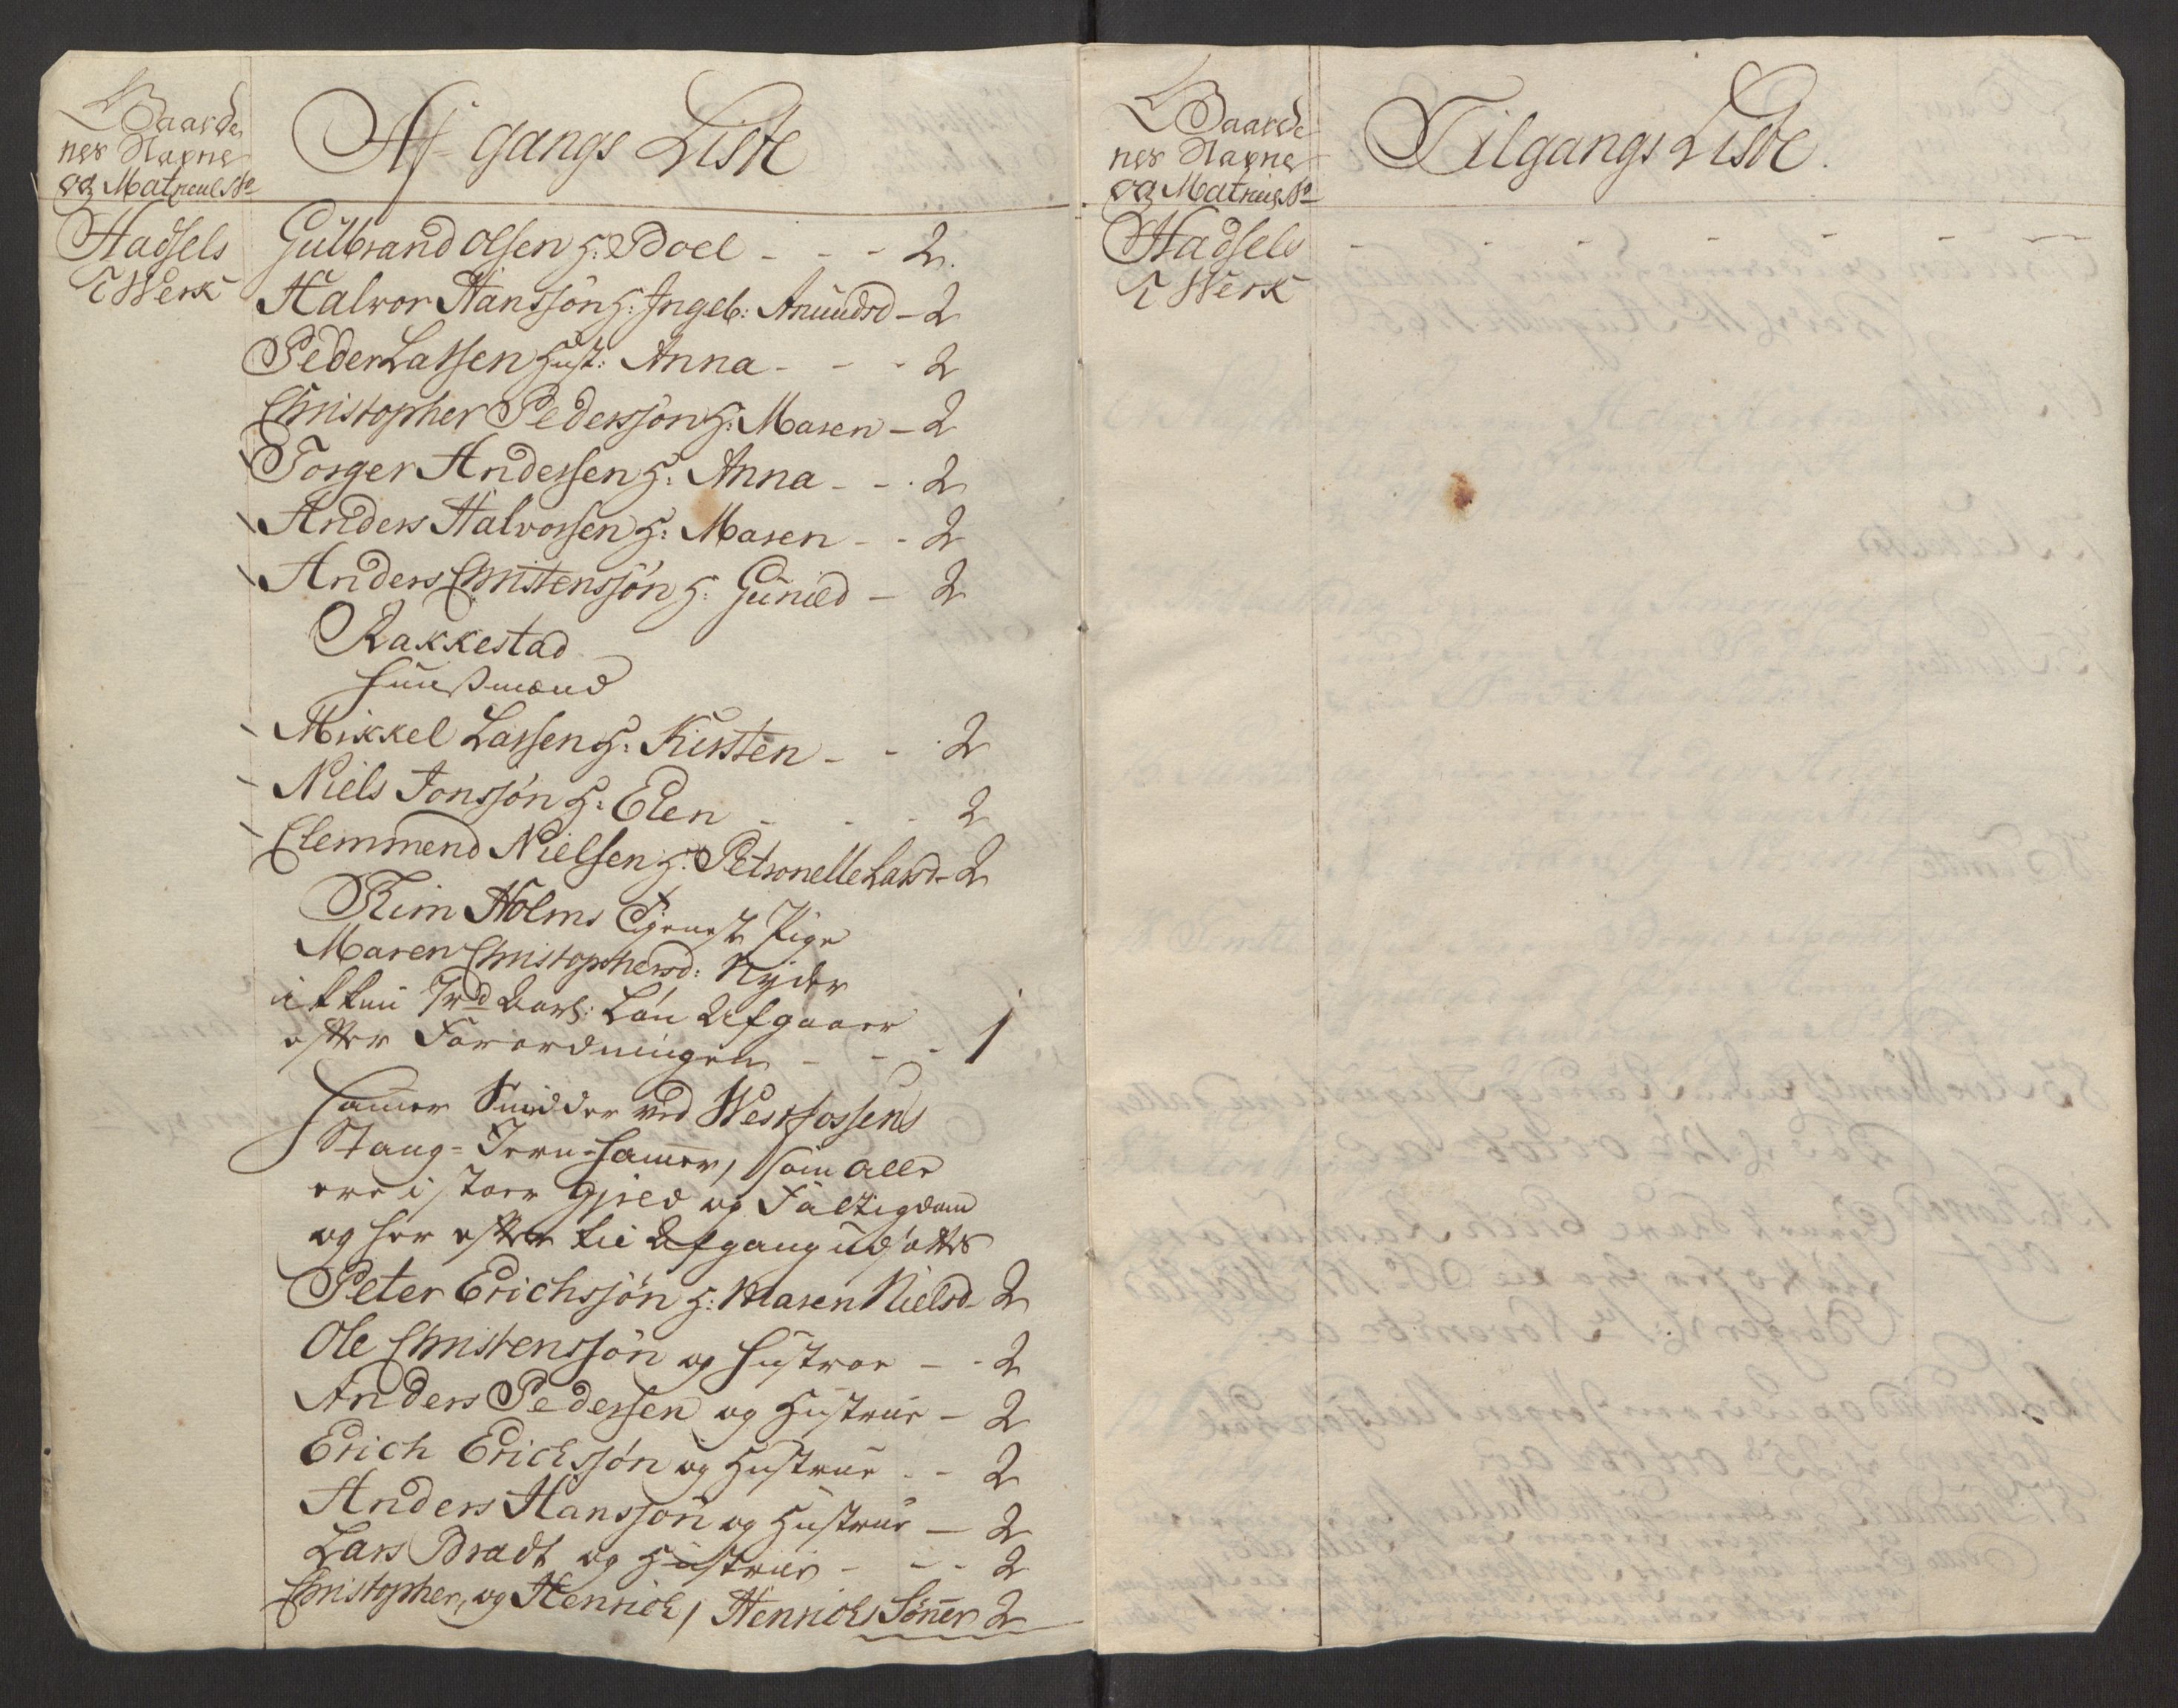 Gaarde
nes Nafne
og Matricul No
Af gangs Liste
Hadsels
Werk
Gulbrand Olsen H: Boel - - - 2.
Halvor Hanssøn H: Ingeb: Anundsd - 2
Peder Larssen Hust: Anna - - - 2
Christopher Pederssøn H: Maren - 2
Torger Anderssen H: Anna - - . 2
Anders Halvorssen H: Maren - - 2
Anders Christenssøn H: Gunild - 2
Rakkestad
Huusmænd
Mikkel Larssen H: Kirsten - - 2
Niels Jonssøn H: Elen - - - 2
Clemmend Nielsen H: Petronelle Larsd - 2
Holms Tjeneste Pige
Maren Christophersd: Nyder
ikkun Løn Afgaaer
efter Forordningen - - - 1
Hamer Smidder ved Westfossens
Stang-Jern-Hamer, som alle
ere i stoer Gjæld og Fattigdom
og her efter til Afgang udsættes
Peter Erichssøn H: Maren Nielsd - 2
Ole Christenssøn og Hustroe - - 2
Anders Pederssen og Hustrue - 2
Erich Erichssøn og Hustrue - - 2
Anders Hanssøn og Hustrue - 2
Lars Bradt og Hustrue - - - 2
Christopher, og Henrich, Henrichs Sønner 2
Gaarde
nes Nafne
og Matricul No
Tilgangs Liste.
Hadsels
Werk
- - - - - - -